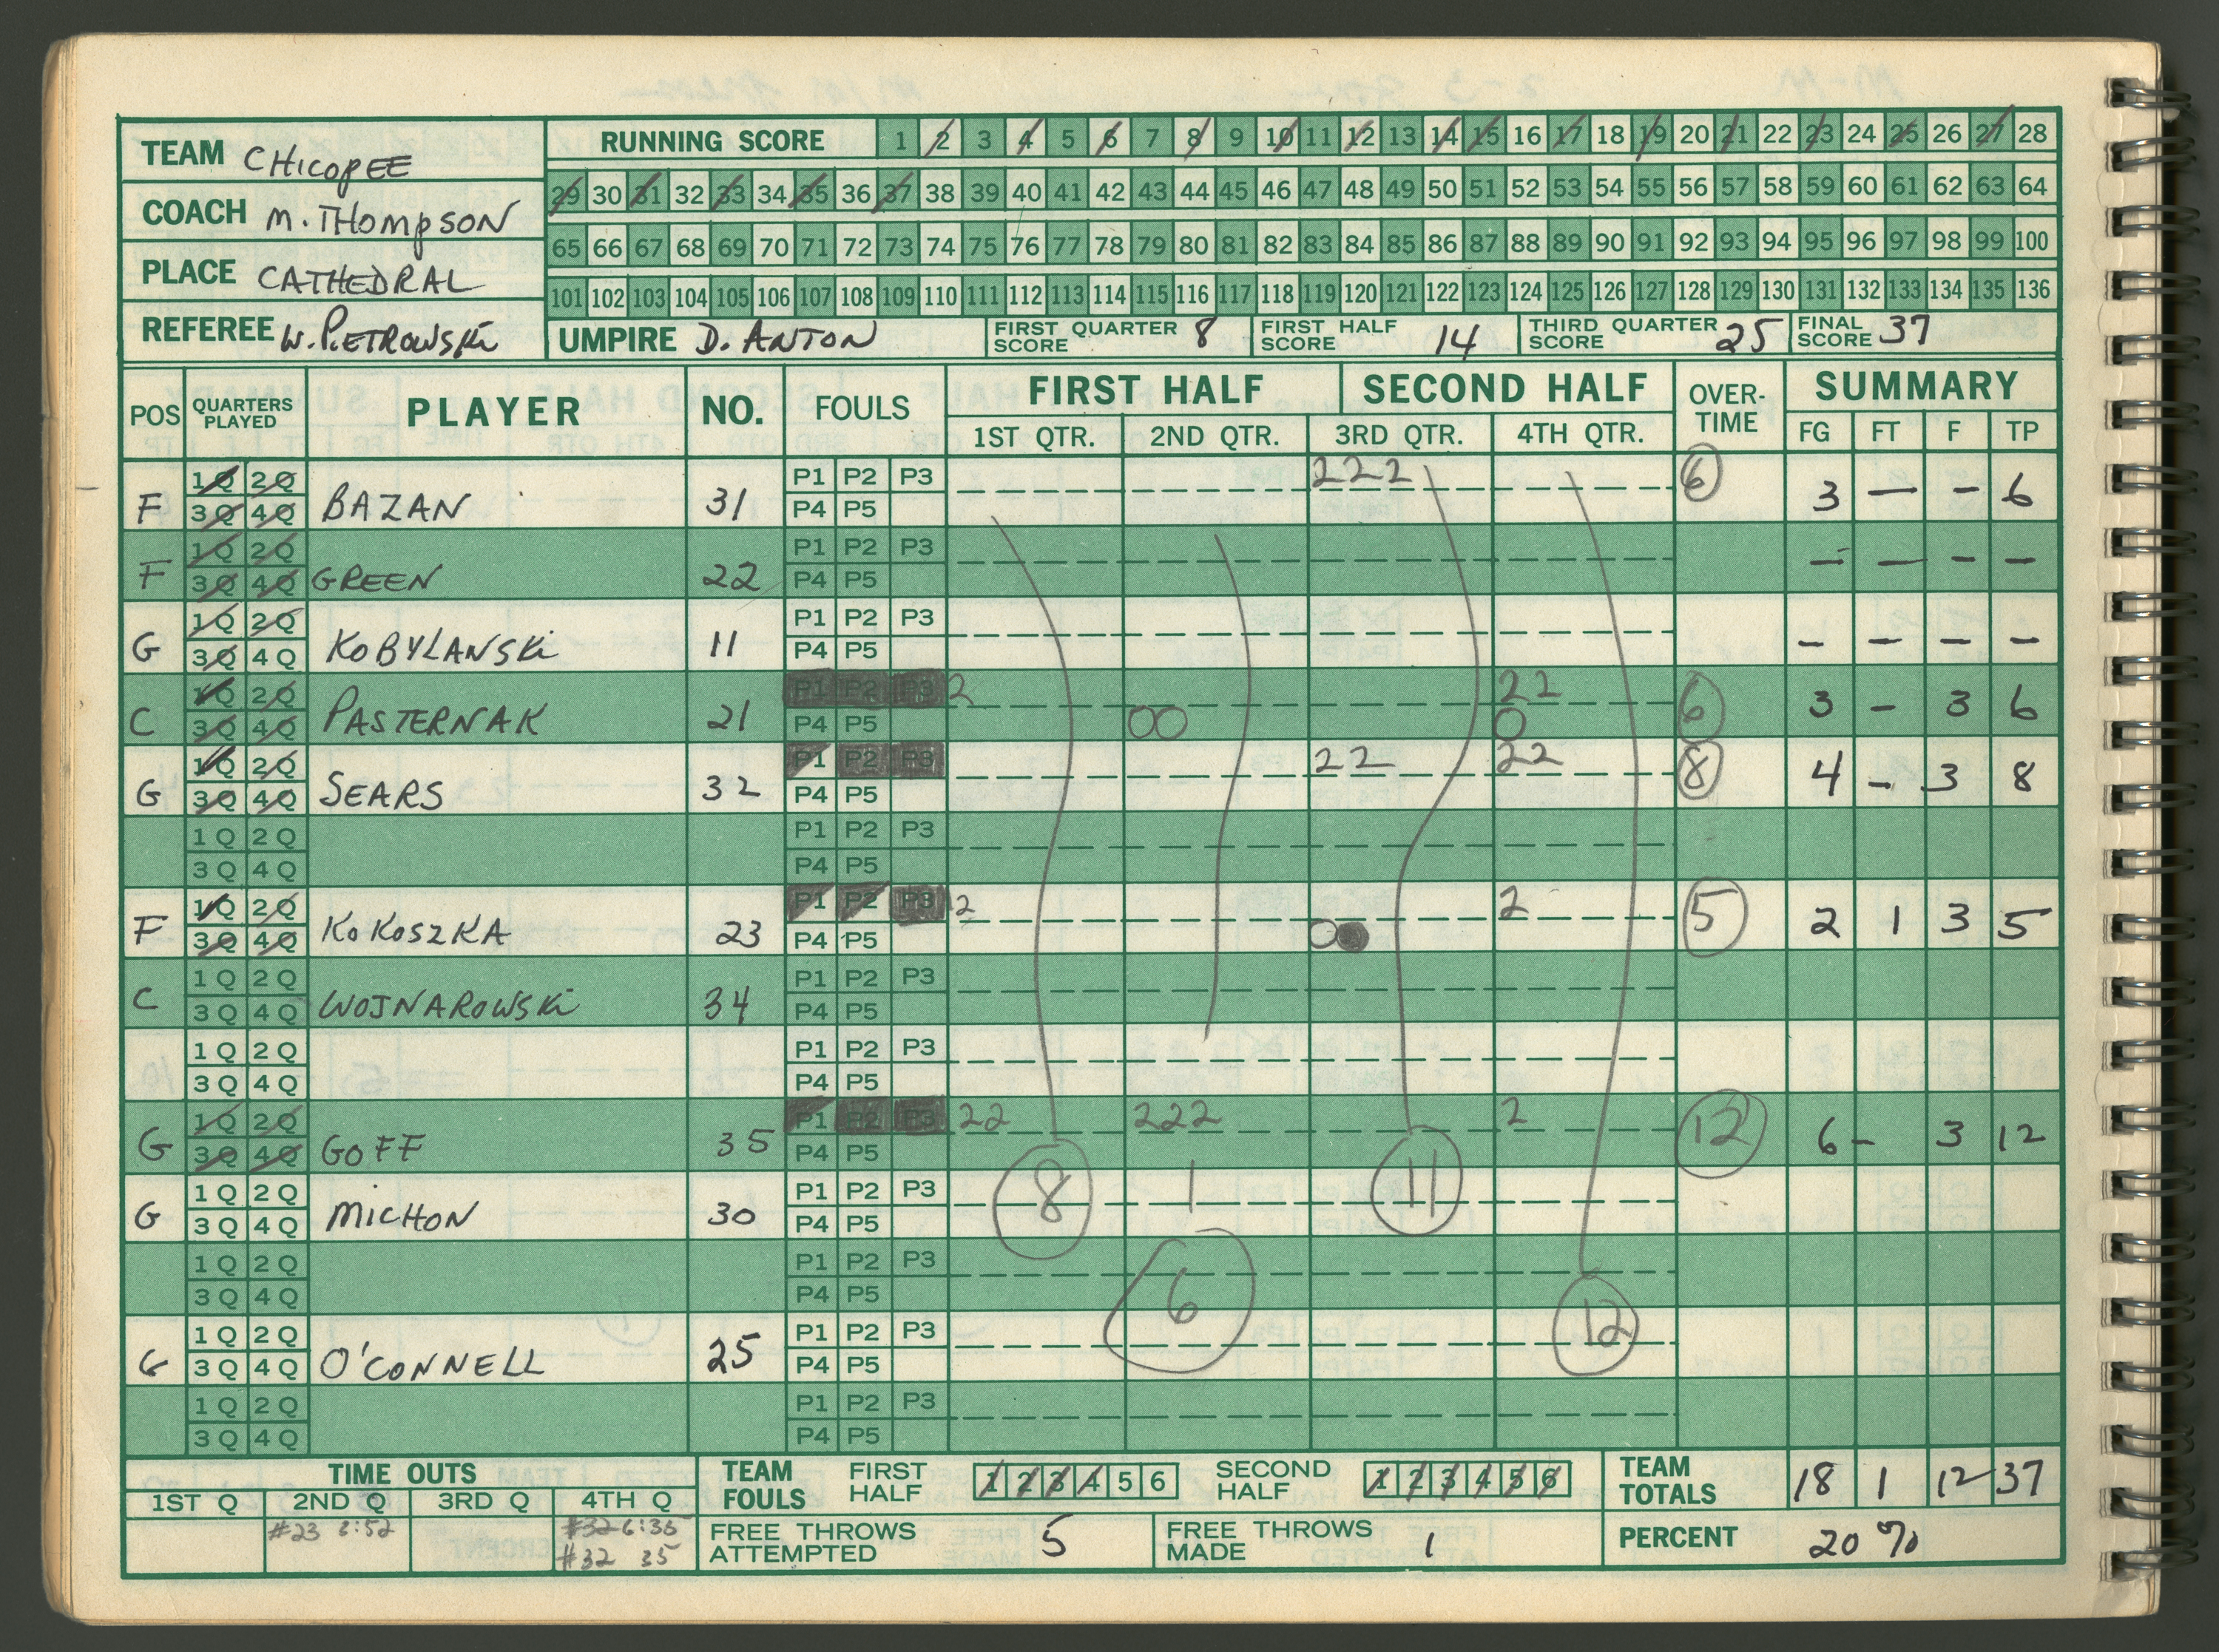 TEAM CHICOPEE
COACH M. THOMPSON
PLACE CATHEDRAL
REFEREE W. PIETROWSKI
RUNNING SCORE 1 2 3 4 5 6 7 8 9 10 11 12 13 14 15 16 17 18 19 20 21 22 23 24 25 26 27 28
29 30 31 32 33 34 35 36 37 38 39 40 41 42 43 44 45 46 47 48 49 50 51 52 53 54 55 56 57 58 59 60 61 62 63 64
65 66 67 68 69 70 71 72 73 74 75 76 77 78 79 80 81 82 83 84 85 86 87 88 89 90 91 92 93 94 95 96 97 98 99 100
101 102 103 104 105 106 107 108 109 110 111 112 113 114 115 116 117 118 119 120 121 122 123 124 125 126 127 128 129 130 131 132 133 134 135 136
UMPIRE D. ANTON FIRST QUARTER SCORE 8 FIRST HALF SCORE 14 THIRD QUARTER SCORE 25 FINAL SCORE 37
POS QUARTERS PLAYED PLAYER NO. FOULS FIRST HALF SECOND HALF OVER-TIME SUMMARY
1ST QTR. 2ND QTR. 3RD QTR. 4TH QTR. FG FT F TP
1Q 2Q P1 P2 P3 222 6
F 3Q 4Q BAZAN 31 P4 P5 3 — - 6
1Q 2Q P1 P2 P3
F 3Q 4Q GREEN 22 P4 P5 - — - -
1Q 2Q P1 P2 P3
G 3Q 4Q KOBYLANSKI 11 P4 P5 - - - -
1Q 2Q P1 P2 P3 2 22
C 3Q 4Q PASTERNAK 21 P4 P5 OO O 6 3 - 3 6
1Q 2Q P1 P2 P3 22 22 8
G 3Q 4Q SEARS 32 P4 P5 4 - 3 8
1Q 2Q P1 P2 P3
3Q 4Q P4 P5
1Q 2Q P1 P2 P3 2 2 5
F 3Q 4Q KOKOSZKA 23 P4 P5 O● 2 1 3 5
1Q 2Q P1 P2 P3
C 3Q 4Q WOJNAROWSKI 34 P4 P5
1Q 2Q P1 P2 P3
3Q 4Q P4 P5
1Q 2Q P1 P2 P3 22 222 2 12
G 3Q 4Q GOFF 35 P4 P5 6 - 3 12
1Q 2Q P1 P2 P3 8 1 11
G 3Q 4Q MICHON 30 P4 P5
1Q 2Q P1 P2 P3
3Q 4Q P4 P5 6
1Q 2Q P1 P2 P3 12
G 3Q 4Q O'CONNELL 25 P4 P5
1Q 2Q P1 P2 P3
3Q 4Q P4 P5
TIME OUTS
1ST Q 2ND Q 3RD Q 4TH Q
#23 3:52 #32 6:35
#32 35
TEAM FOULS FIRST HALF 1 2 3 4 5 6 SECOND HALF 1 2 3 4 5 6
FREE THROWS ATTEMPTED 5 FREE THROWS MADE 1
TEAM TOTALS 18 1 12 37
PERCENT 20%